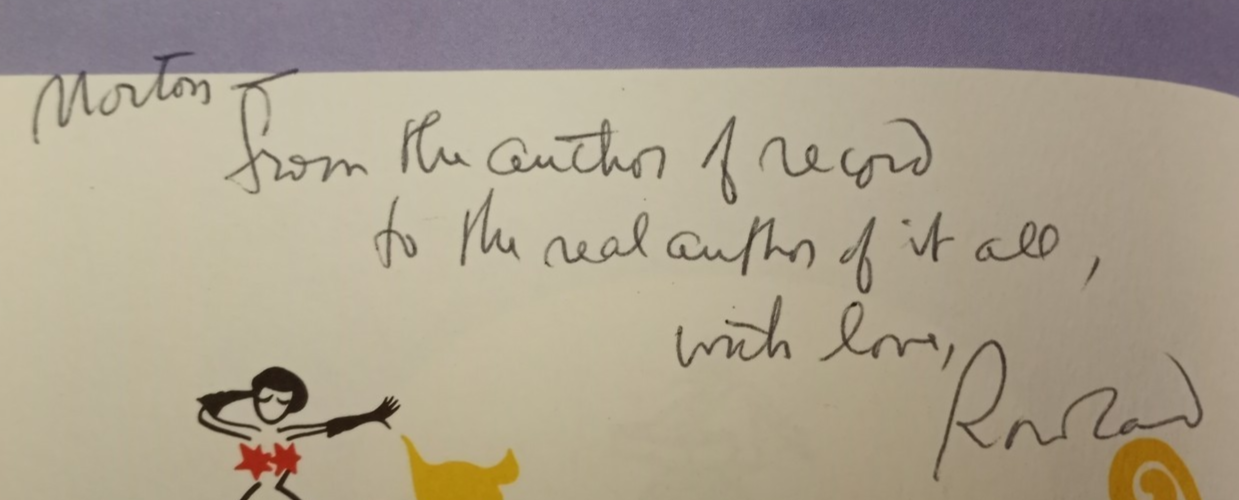 Morton –
from the author of record
to the real author of it all,
with love,
Rowland